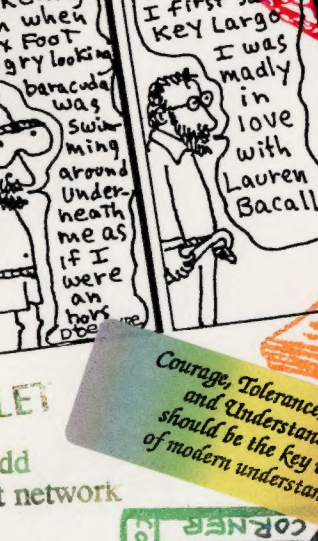 n when
x Foot
gry looking
barracuda
was
swim-
ming
around
under-
neath
me as
if I
were
an
hors
I first
Key Largo
I was
madly
in
love
with
Lauren
Bacall
LET
dd
t network
Courage, Tolerance
and Understan
should be the key
of modern understan
CORNER